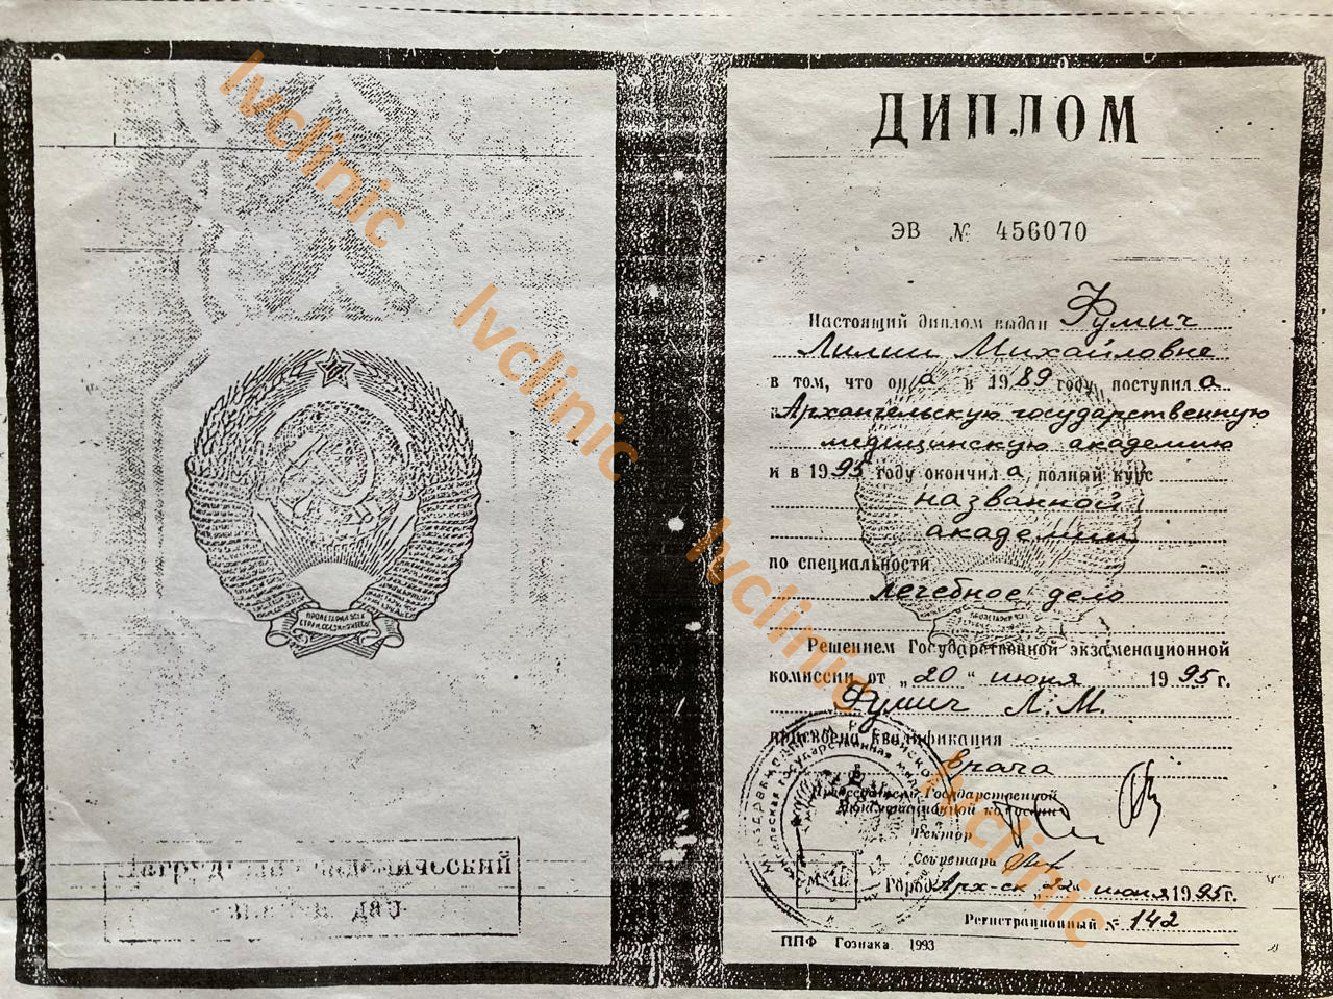 lvclinic
lvclinic
lvclinic
lvclinic
ПРОЛЕТАРИИ ВСЕХ
СТРАН, СОЕДИНЯЙТЕСЬ!
ДИПЛОМ
ЭВ № 456070
Настоящий диплом выдан Фумич
Лилии Михайловне
в том, что он а в 1989 году поступил а
в Архангельскую государственную
медицинскую академию
и в 1995 году окончил а полный курс
названной
академии
по специальности
лечебное дело
Решением Государственной экзаменационной
комиссии от „20“ июня 1995 г.
Фумич Л. М.
присвоена квалификация
врача
Председатель Государственной
экзаменационной комиссии
Ректор
Секретарь
М. П.
Город Арх-ск „22“ июня 1995г.
Регистрационный № 142
ППФ Гознака. 1993